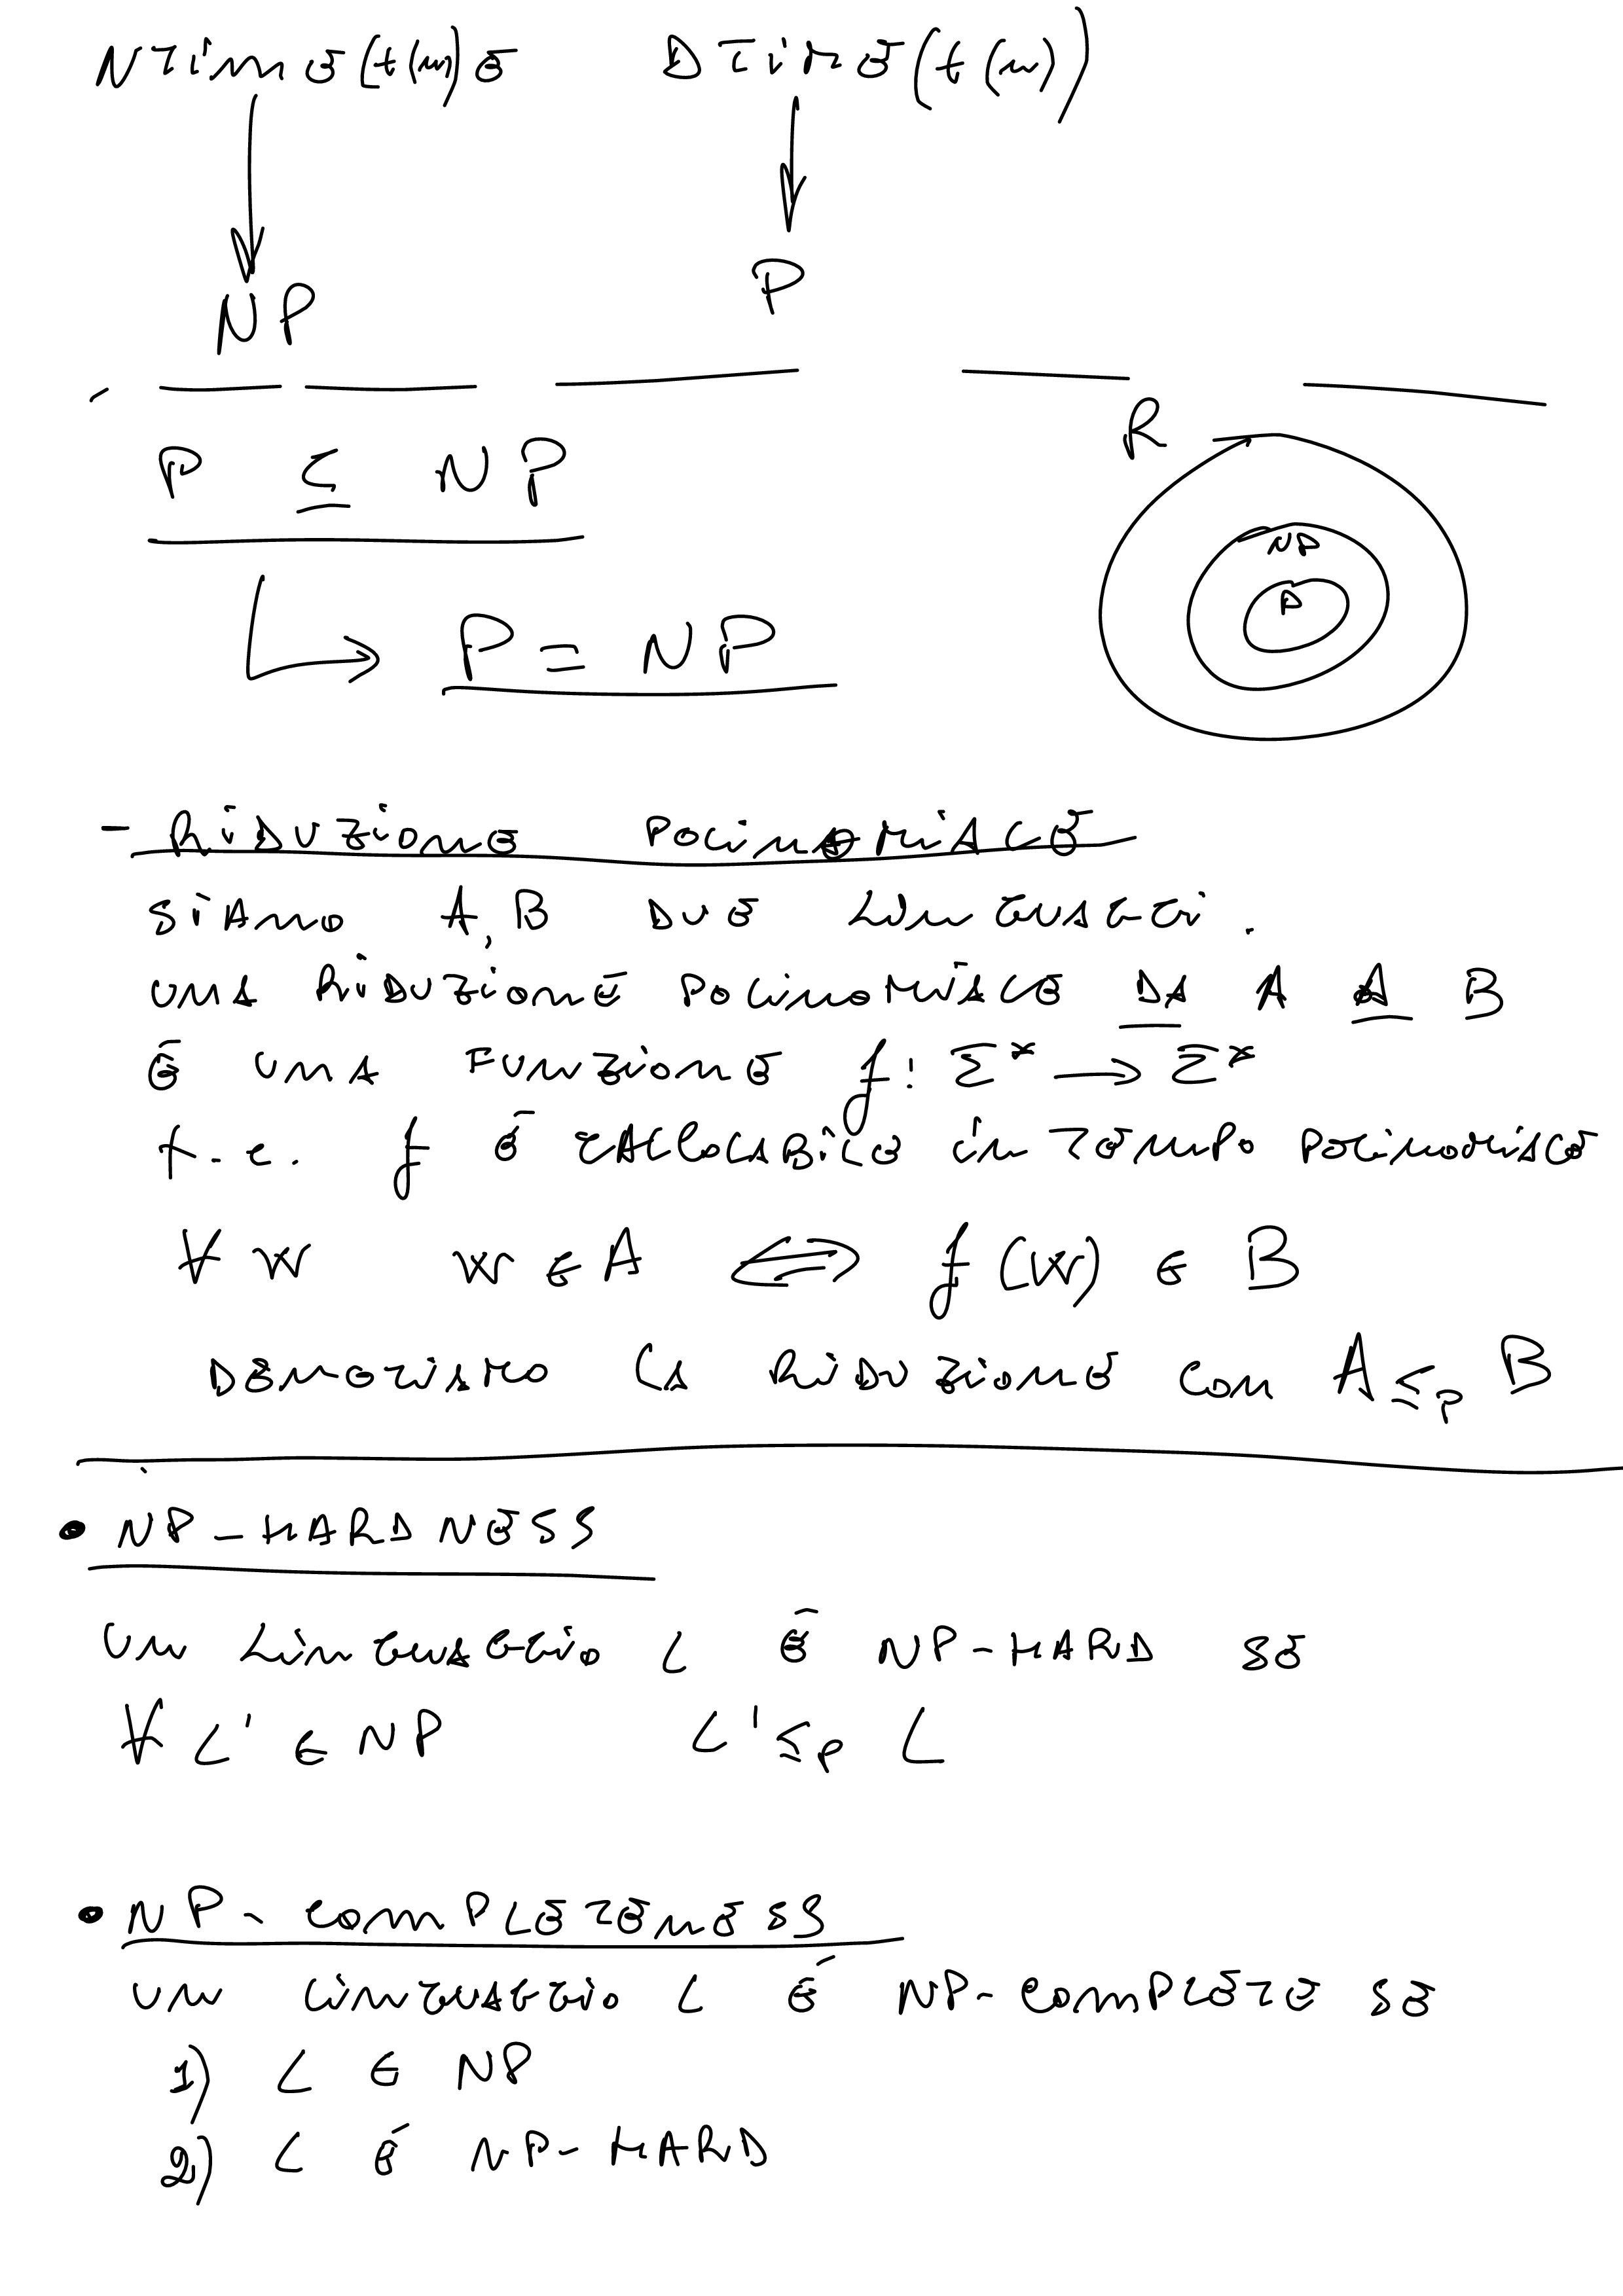 NTIME(t(n)) E DTIME(t(n))
NP P
P ⊆ NP
R
NP
P
P = NP
- RIDUZIONE POLINOMIALE
SIANO A, B DUE LINGUAGGI.
UNA RIDUZIONE POLINOMIALE DA A A B
È UNA FUNZIONE f: Σ* → Σ*
t.c. f È CALCOLABILE IN TEMPO POLINOMIALE
∀ w w ∈ A ⇔ f(w) ∈ B
DENOTIAMO LA RIDUZIONE CON A ≤p B
• NP-HARDNESS
UN LINGUAGGIO L È NP-HARD SE
∀ L' ∈ NP L' ≤p L
• NP-COMPLETENESS
UN LINGUAGGIO L È NP-COMPLETE SE
1) L ∈ NP
2) L È NP-HARD